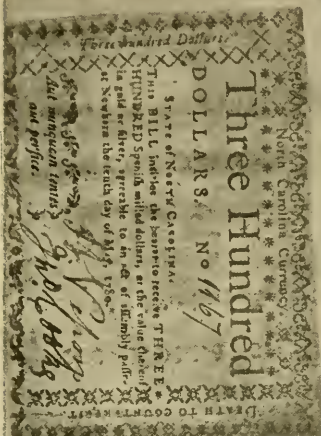 North Carolina Currency.
Three Hundred
DOLLARS. No 1967
STATE of NORTH CAROLINA.
THIS BILL intitles the bearer to receive THREE
HUNDRED Spanish milled dollars, or the value thereof
in gold or silver, agreeable to an act of assembly passed
at Newbern the tenth day of May, 1780.
Aut nunquam tentes
aut perfice.
Three Hundred Dollars.
DEATH TO COUNTERFEIT